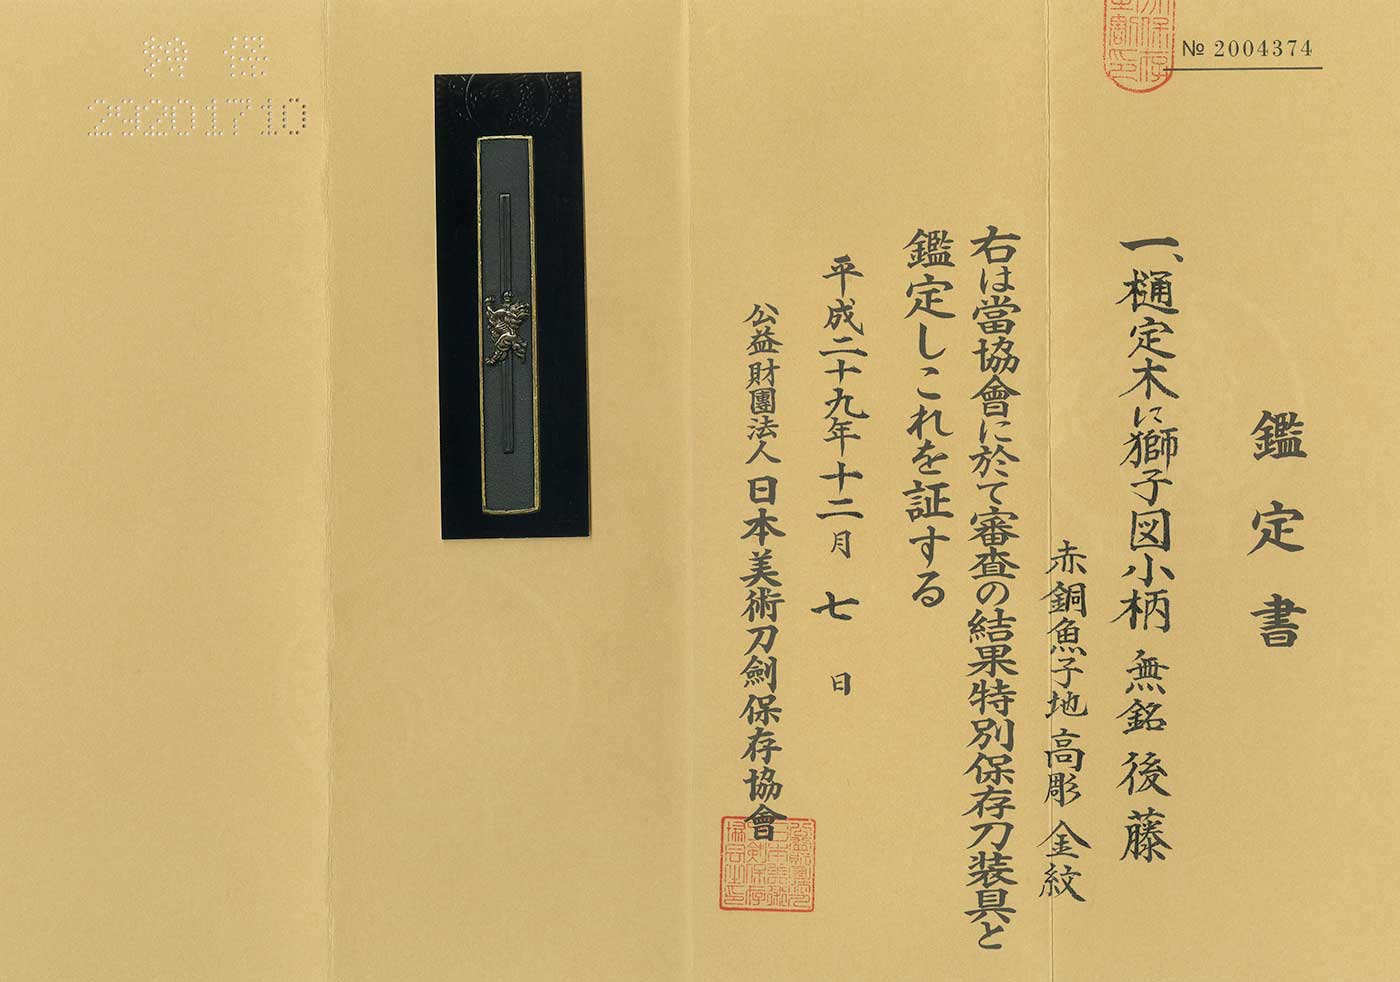 № 2004374
鑑定書
一、樋定木に獅子図小柄 無銘 後藤
赤銅魚子地 高彫 金紋
右は當協會に於て審査の結果特別保存刀装具と
鑑定しこれを証する
平成二十九年十二月七日
公益財團法人日本美術刀劍保存協會
特保
29201710